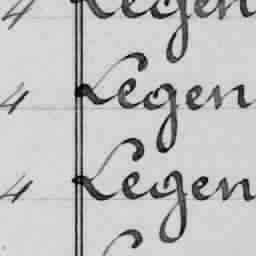 4 Legen
4 Legen
4 Legen